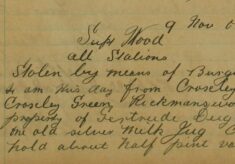 9 Nov 0
Supt Wood
All Stations
Stolen by means of Burg
4 am this day from Croxle
Croxley Green, Rickmanswo
property of Gertrude Dug
the old silver Milk Jug C
hold about half pint va